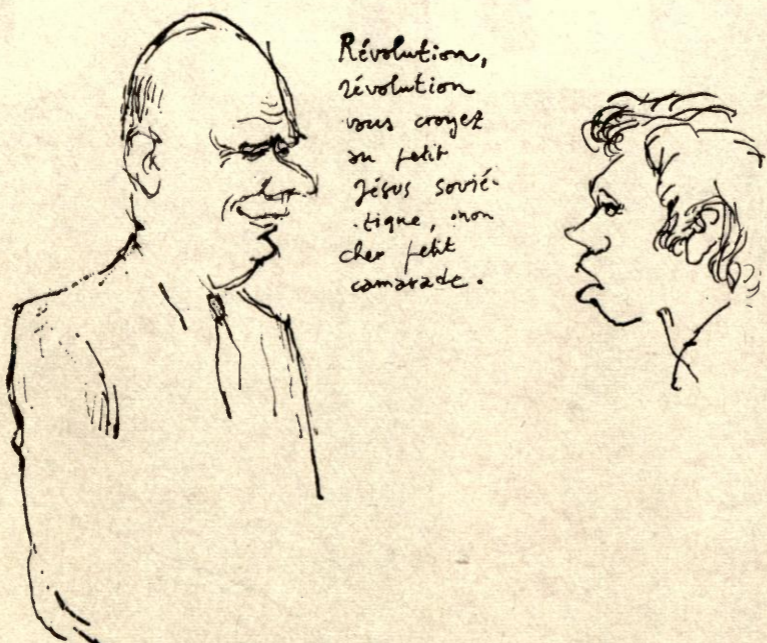 Révolution,
révolution
vous croyez
au petit
Jésus sovié-
-tique, mon
cher petit
camarade.